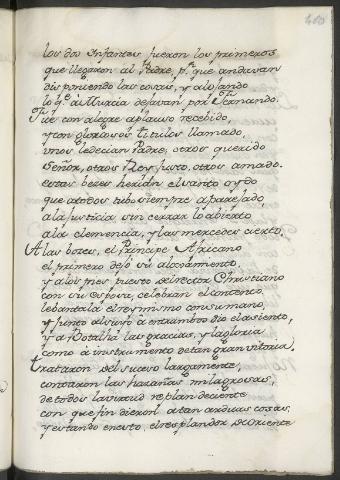 los dos Infantes fueron los primeros
que llegaron al Padre, pr que andavan
disponiendo las cosas, y alojando
lo qe à Murcia dejavan por Fernando.
Fue con alegre aplauso recebido,
y con gloriosos titulos llamado,
unos le decian Padre, otros querido
Señor, otros Rey justo, otros amado.
estas bezes herian el santo oydo
que atodos tubo siempre aparejado,
a la justicia sin cerrar lo abierto
a la clemencia, y las mercedes cierto.
A las botes, el Principe Africano
el primero dejó su alojamiento,
y a los pies puesto del rector Christiano
con su esposa, celebran el contento.
lebantala el Reyismo con su mano,
y junto al suyo à entrambos dio el asiento,
y a Botalha las gracias, y la gloria
como à instrumento de tan gran vitoria.
trataron del suceso largamente,
contaron las hazañas milagrosas,
de todos la virtud resplandeciente
con que fin dieron a tan arduas cosas,
y estando en esto, el resplandor de Oriente